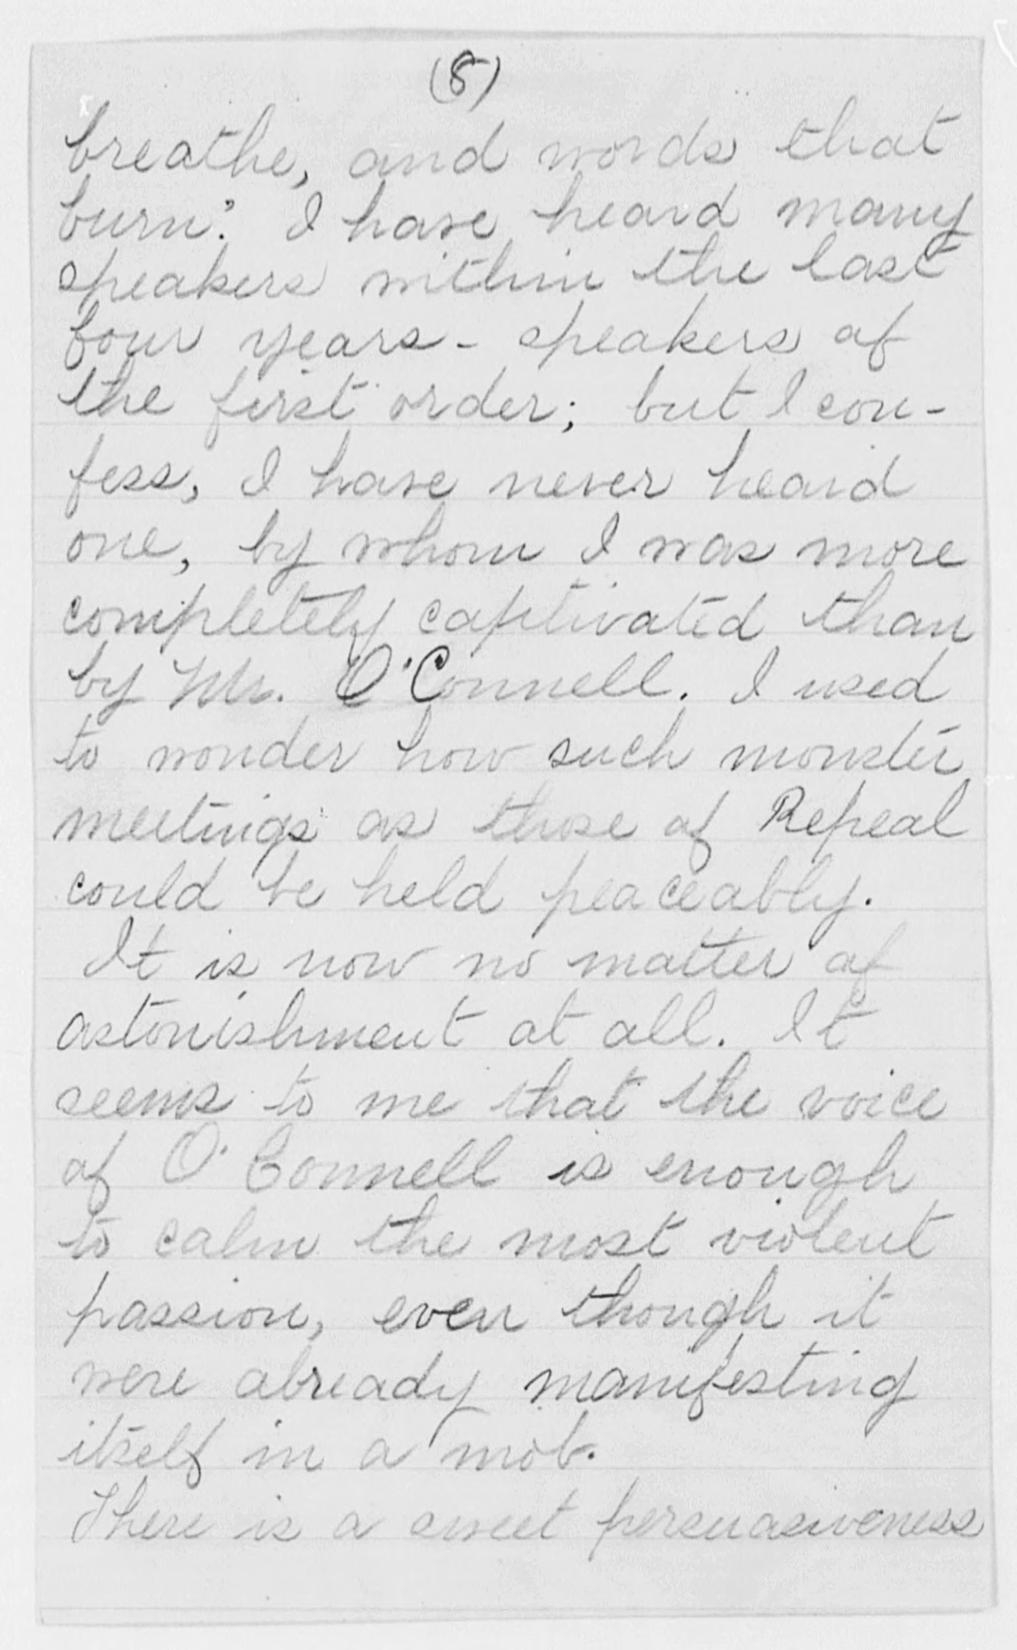 (8)
breathe, and words that
burn." I have heard many
speakers within the last
four years - speakers of
the first order; but I con-
fess, I have never heard
one, by whom I was more
completely captivated than
by Mr. O'Connell. I used
to wonder how such monster
meetings as those of Repeal
could be held peaceably.
It is now no matter of
astonishment at all. It
seems to me that the voice
of O'Connell is enough
to calm the most violent
passion, even though it
were already manifesting
itself in a mob.
There is a sweet persuasiveness